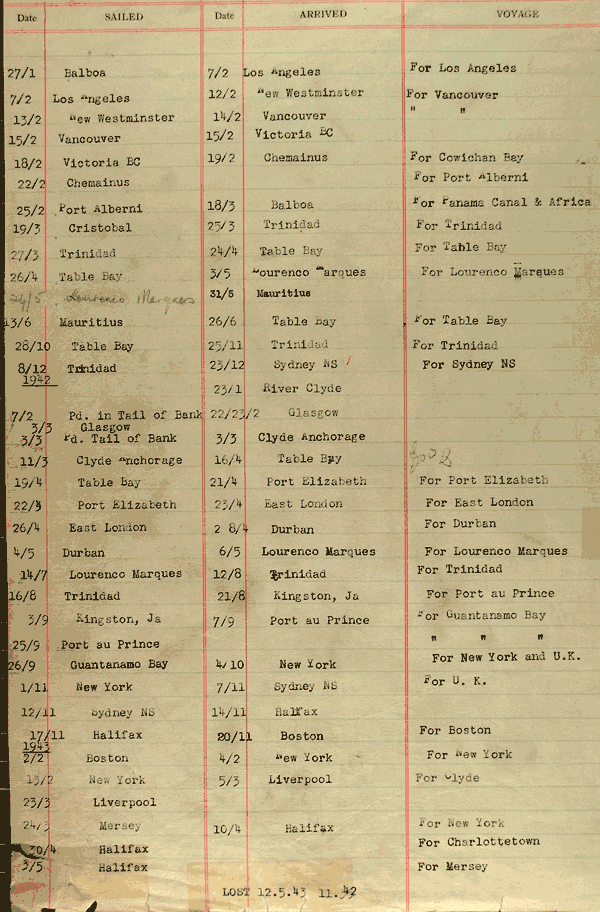 Date SAILED Date ARRIVED VOYAGE
27/1 Balboa 7/2 Los Angeles For Los Angeles
7/2 Los Angeles 12/2 New Westminster For Vancouver
13/2 New Westminster 14/2 Vancouver " "
15/2 Vancouver 15/2 Victoria BC
18/2 Victoria BC 19/2 Chemainus For Cowichan Bay
22/2 Chemainus For Port Alberni
25/2 Port Alberni 18/3 Balboa For Panama Canal & Africa
19/3 Cristobal 25/3 Trinidad For Trinidad
27/3 Trinidad 24/4 Table Bay For Table Bay
26/4 Table Bay 3/5 Lourenco Marques For Lourenco Marques
24/5 Lourenco Marques 31/5 Mauritius
13/6 Mauritius 26/6 Table Bay For Table Bay
28/10 Table Bay 25/11 Trinidad For Trinidad
8/12 Trinidad 23/12 Sydney NS For Sydney NS
1942
23/1 River Clyde
7/2 Pd. in Tail of Bank 22/23/2 Glasgow
3/3 Glasgow
3/3 Pd. Tail of Bank 3/3 Clyde Anchorage
11/3 Clyde Anchorage 16/4 Table Bay
19/4 Table Bay 21/4 Port Elizabeth For Port Elizabeth
22/4 Port Elizabeth 23/4 East London For East London
26/4 East London 2 8/4 Durban For Durban
4/5 Durban 6/5 Lourenco Marques For Lourenco Marques
14/7 Lourenco Marques 12/8 Trinidad For Trinidad
16/8 Trinidad 21/8 Kingston, Ja For Port au Prince
3/9 Kingston, Ja 7/9 Port au Prince For Guantanamo Bay
25/9 Port au Prince " " "
26/9 Guantanamo Bay 4/10 New York For New York and U.K.
1/11 New York 7/11 Sydney NS For U. K.
12/11 Sydney NS 14/11 Halifax
17/11 Halifax 20/11 Boston For Boston
1943
2/2 Boston 4/2 New York For New York
13/2 New York 5/3 Liverpool For Clyde
23/3 Liverpool
24/3 Mersey 10/4 Halifax For New York
30/4 Halifax For Charlottetown
3/5 Halifax For Mersey
LOST 12.5.43